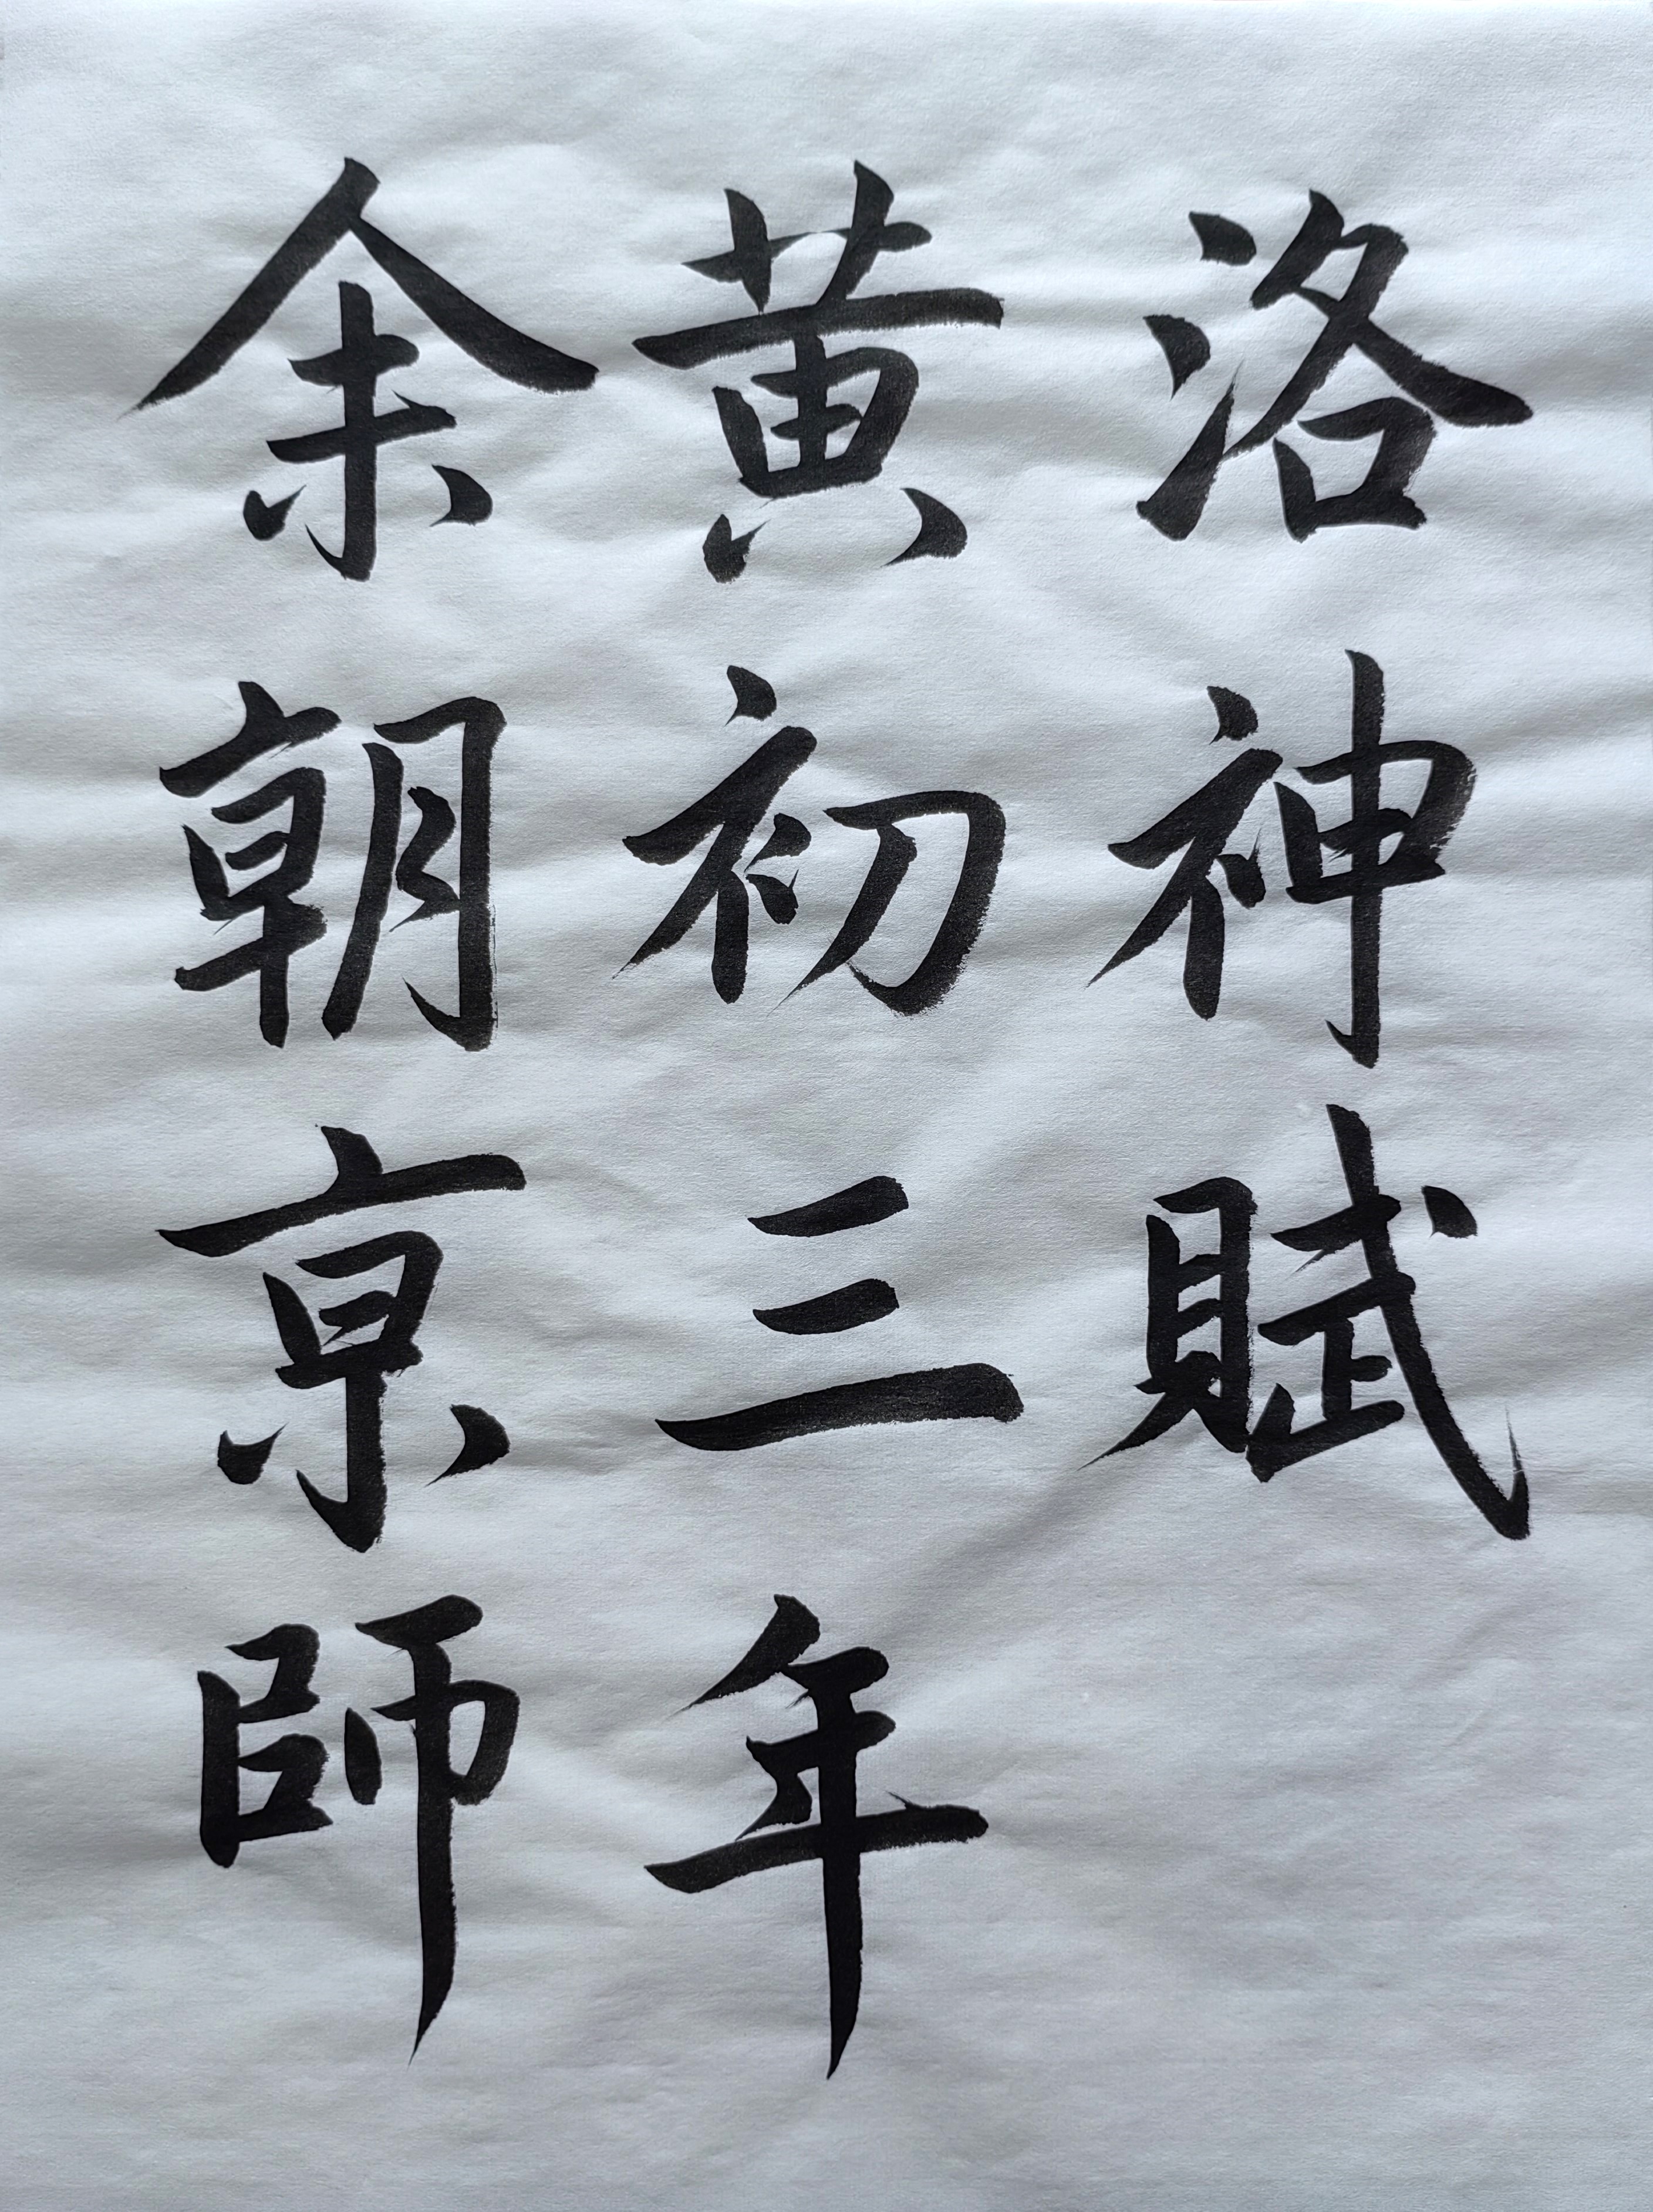 洛神賦
黄初三年
余朝京師